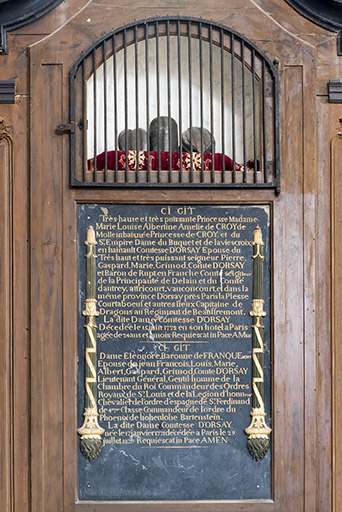 CI GIT
Très haute et très puissante Princesse Madame
Marie Louise Albertine Amelie de CROY de
Mollembaix née Princesse de CROY et du
St. Empire Dame du Buquet et de la viescroix
en hainault Comtesse D'ORSAY Epouse du
Très haut et très puissant seigneur Pierre,
Gaspard, Marie, Grimod, Comte D'ORSAY
et Baron de Rupt en Franche Comté seign.
de la Principauté de Delain et du Comté
dautrey, attricourt, vauconcourt et dans la
même province Dorsay près Paris la Plesse
Courtaboeuf et autres lieux Capitaine de
Dragons au Régiment de Beaufremont.
La dite Dame Comtesse D'ORSAY
Décedée le juin 1772 en son hotel a Paris
agée de ans et mois Requiescat in Pace AMen
CI GIT
Dame Eléonore, Baronne de FRANQUE
Epouse de jean François, Louis, Marie,
Albert, Gaspard, Grimod, Comte D'ORSAY
Lieutenant Général, Gentil-homme de la
Chambre du Roi Commandeur des Ordres
Royaux de St. Louis et de la Legion d'honr
Chevalier de l'ordre d'espagne de St. Ferdinand
de Classe Commandeur de l'ordre du
Phoenix de hohenlohe Bartenstein.
La dite Dame Comtesse D'ORSAY
née le janvier décédée a Paris le
juillet Requiescat in Pace AMEN